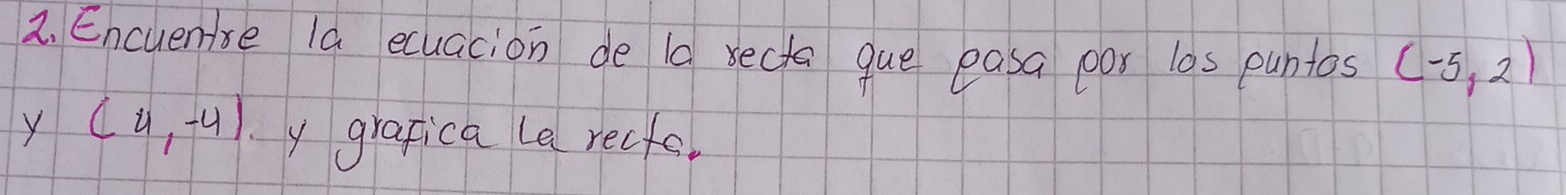 2. Encuentre la ecuación de la recta que pasa por los puntos (-5, 2)
y (4, -4). y grafica la recta.